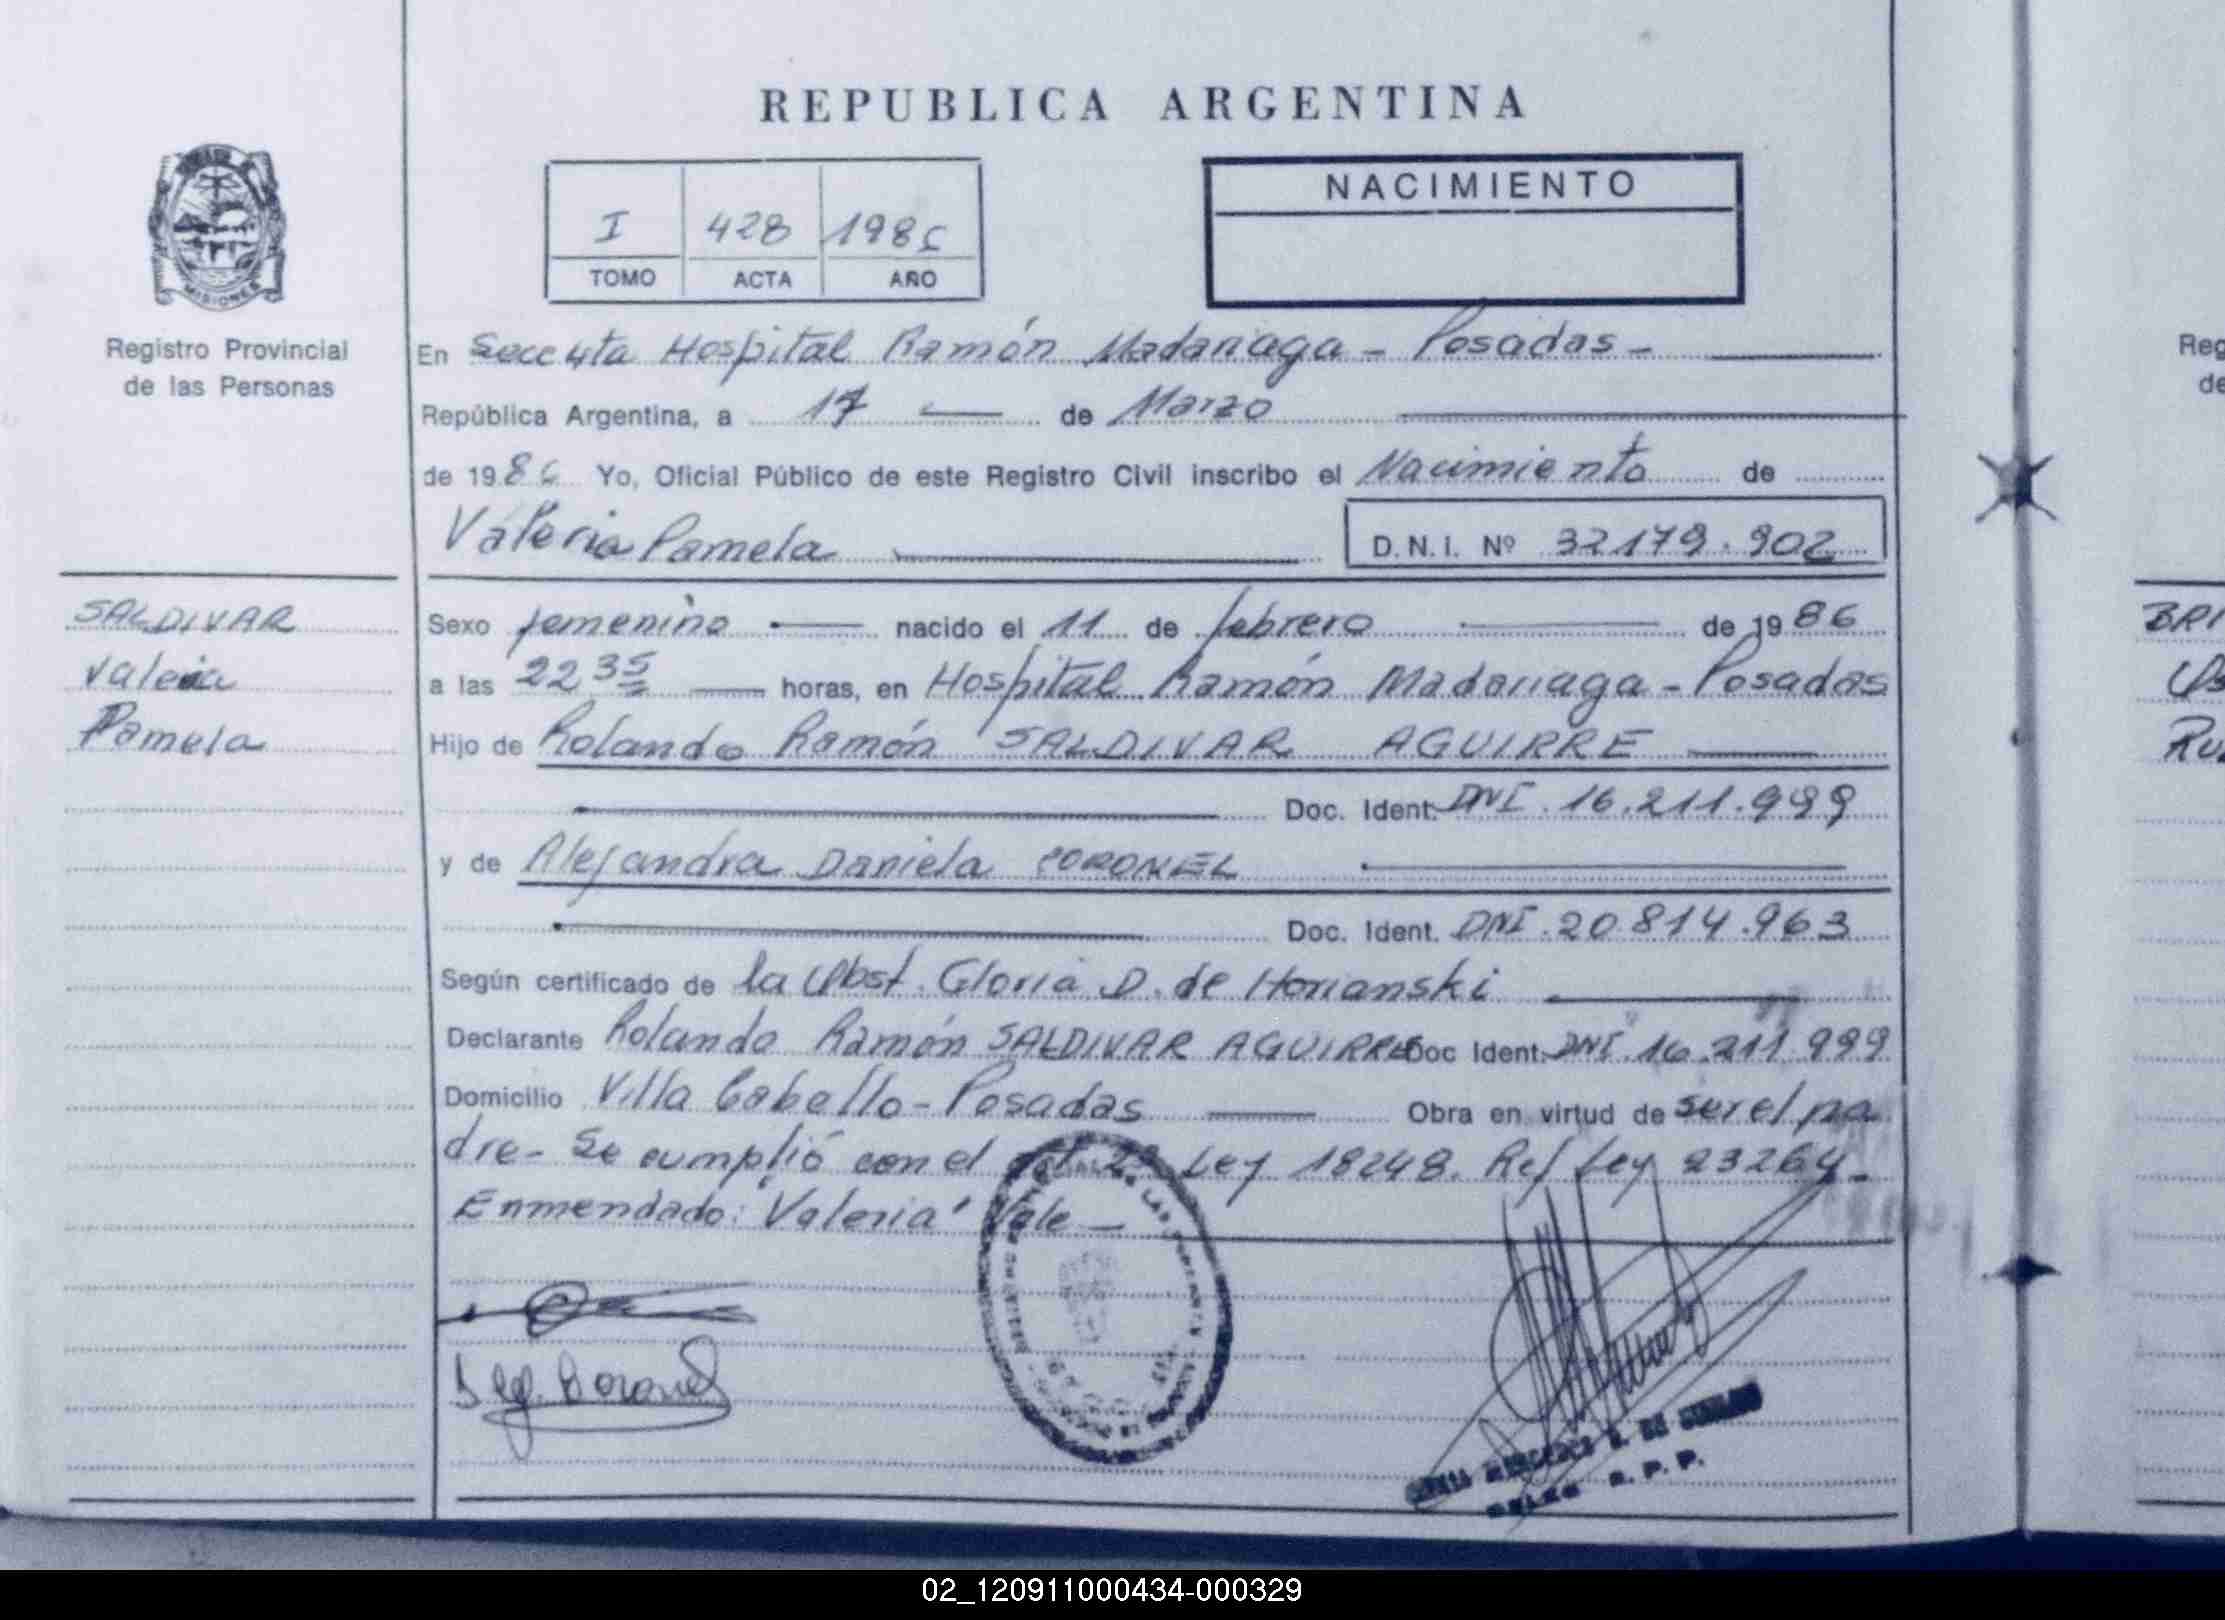 REPUBLICA ARGENTINA
MISIONES
Registro Provincial
de las Personas
I 428 1986
TOMO ACTA AÑO
NACIMIENTO
En Secc 4ta Hospital Ramón Madariaga - Posadas -
República Argentina, a 17 de Marzo
de 1986 Yo, Oficial Público de este Registro Civil inscribo el Nacimiento de
Valeria Pamela D.N.I. Nº 32179.902
SALDIVAR
Valeria
Pamela
Sexo femenino nacido el 11 de febrero de 1986
a las 22 35 horas, en Hospital Ramón Madariaga - Posadas
Hijo de Rolando Ramón SALDIVAR AGUIRRE
Doc. Ident. DNI. 16.211.999
y de Alejandra Daniela CORONEL
Doc. Ident. DNI. 20.814.963
Según certificado de la Obst. Gloria D. de Horianski
Declarante Rolando Ramón SALDIVAR AGUIRRE Doc Ident. DNI. 16.211.999
Domicilio Villa Cabello - Posadas Obra en virtud de ser el pa
dre - Se cumplió con el Ley 18248. Ref Ley 23264 -
Enmendado: "Valeria" Vale -
R. P. P.
Reg
de
BRI
02_120911000434-000329